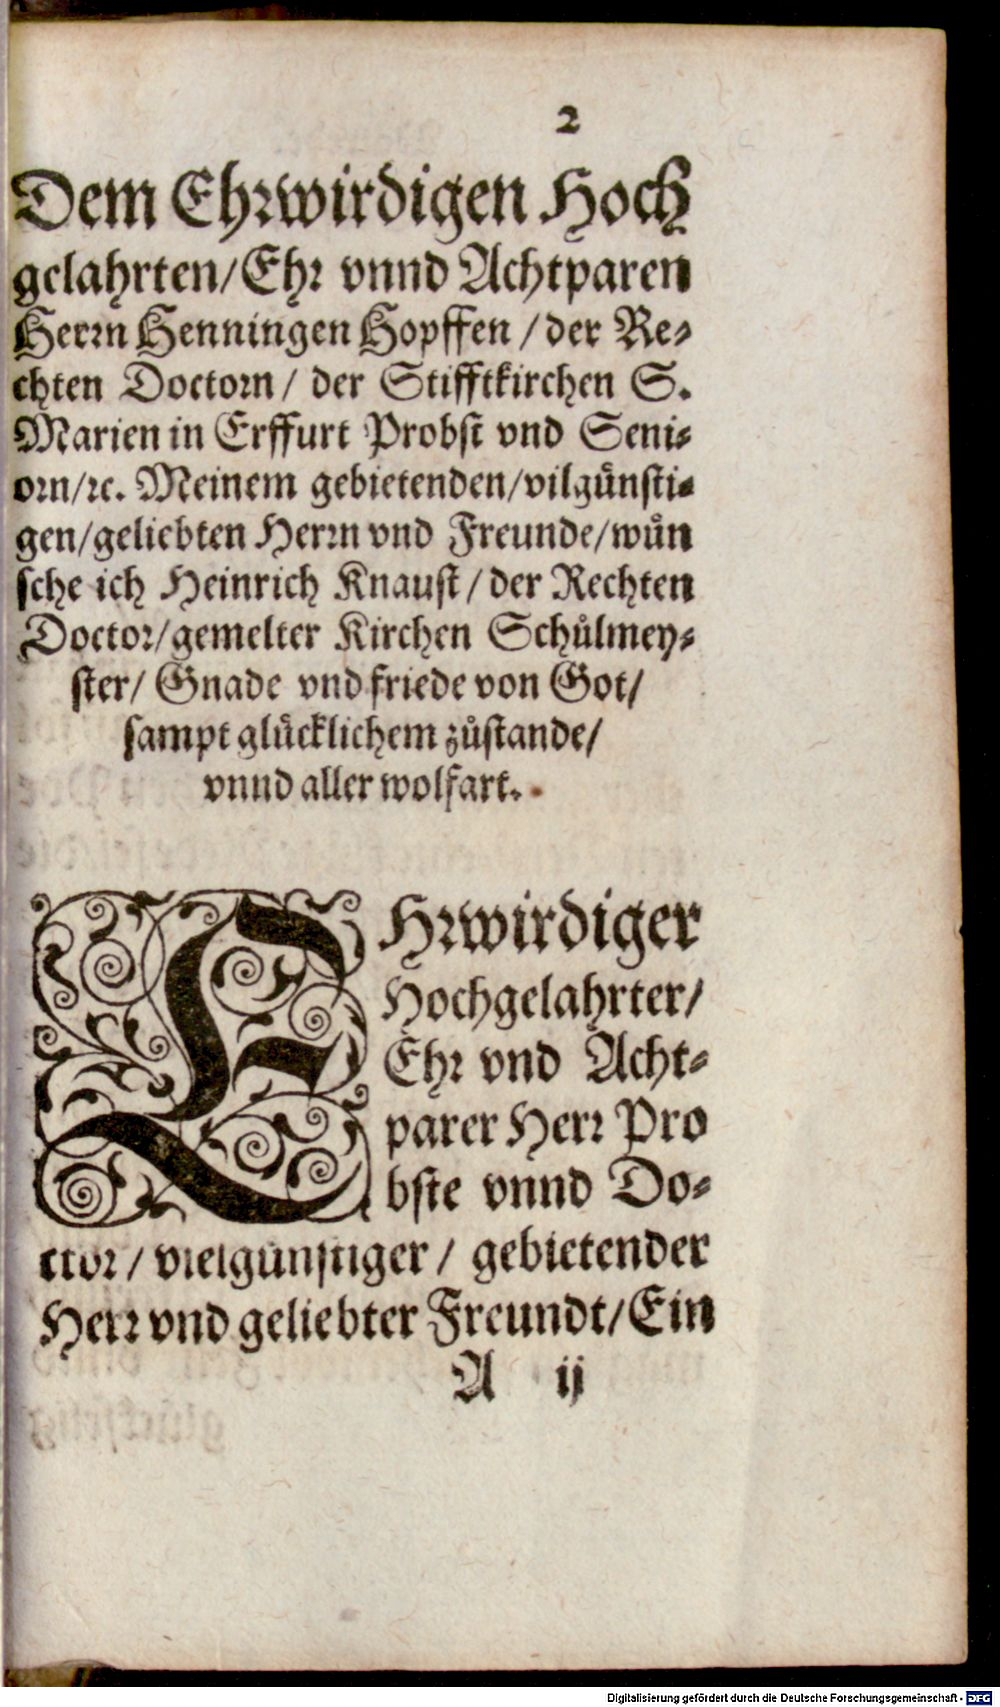 2
Dem Ehrwirdigen Hoch
gelahrten/Ehr vnnd Achtparen
Herrn Henningen Hopffen/der Re-
chten Doctorn/ der Stifftkirchen S.
Marien in Erffurt Probst vnd Seni-
orn/rc. Meinem gebietenden/vilgůnsti-
gen/geliebten Herrn vnd Freunde/wůn
sche ich Heinrich Knaust/der Rechten
Doctor/gemelter Kirchen Schůlmey-
ster/ Gnade vnd friede von Got/
sampt glůcklichem zůstande/
vnnd aller wolfart.
EHrwirdiger
Hochgelahrter/
Ehr vnd Acht-
parer Herr Pro
bste vnnd Do-
ctor/ vielgůnstiger/ gebietender
Herr vnd geliebter Freundt/Ein
A ij
Digitalisierung gefördert durch die Deutsche Forschungsgemeinschaft - DFG